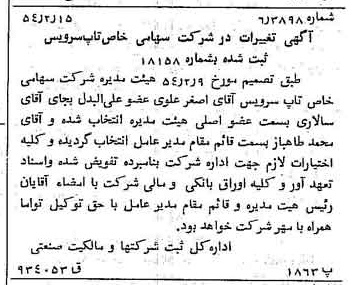 شماره ۶/۳۸۹۸ ۵۴/۲/۱۵
آگهی تغییرات در شرکت سهامی خاص تاپ سرویس
ثبت شده بشماره ۱۸۱۵۸
طبق تصمیم مورخ ۵۴/۲/۹ هیئت مدیره شرکت سهامی
خاص تاپ سرویس آقای اصغر علوی عضو علی‌البدل بجای آقای
سالاری بسمت عضو اصلی هیئت مدیره انتخاب شده و آقای
محمد طاهباز بسمت قائم مقام مدیر عامل انتخاب گردیده و کلیه
اختیارات لازم جهت اداره شرکت بنامبرده تفویض شده واسناد
تعهد آور و کلیه اوراق بانکی و مالی شرکت با امضاء آقایان
رئیس هیت مدیره و قائم مقام مدیر عامل با حق توکیل تواما
همراه با مهر شرکت خواهد بود.
اداره کل ثبت شرکتها و مالکیت صنعتی
پ ۱۸۶۳ ق ۹۳۴۰۵۳